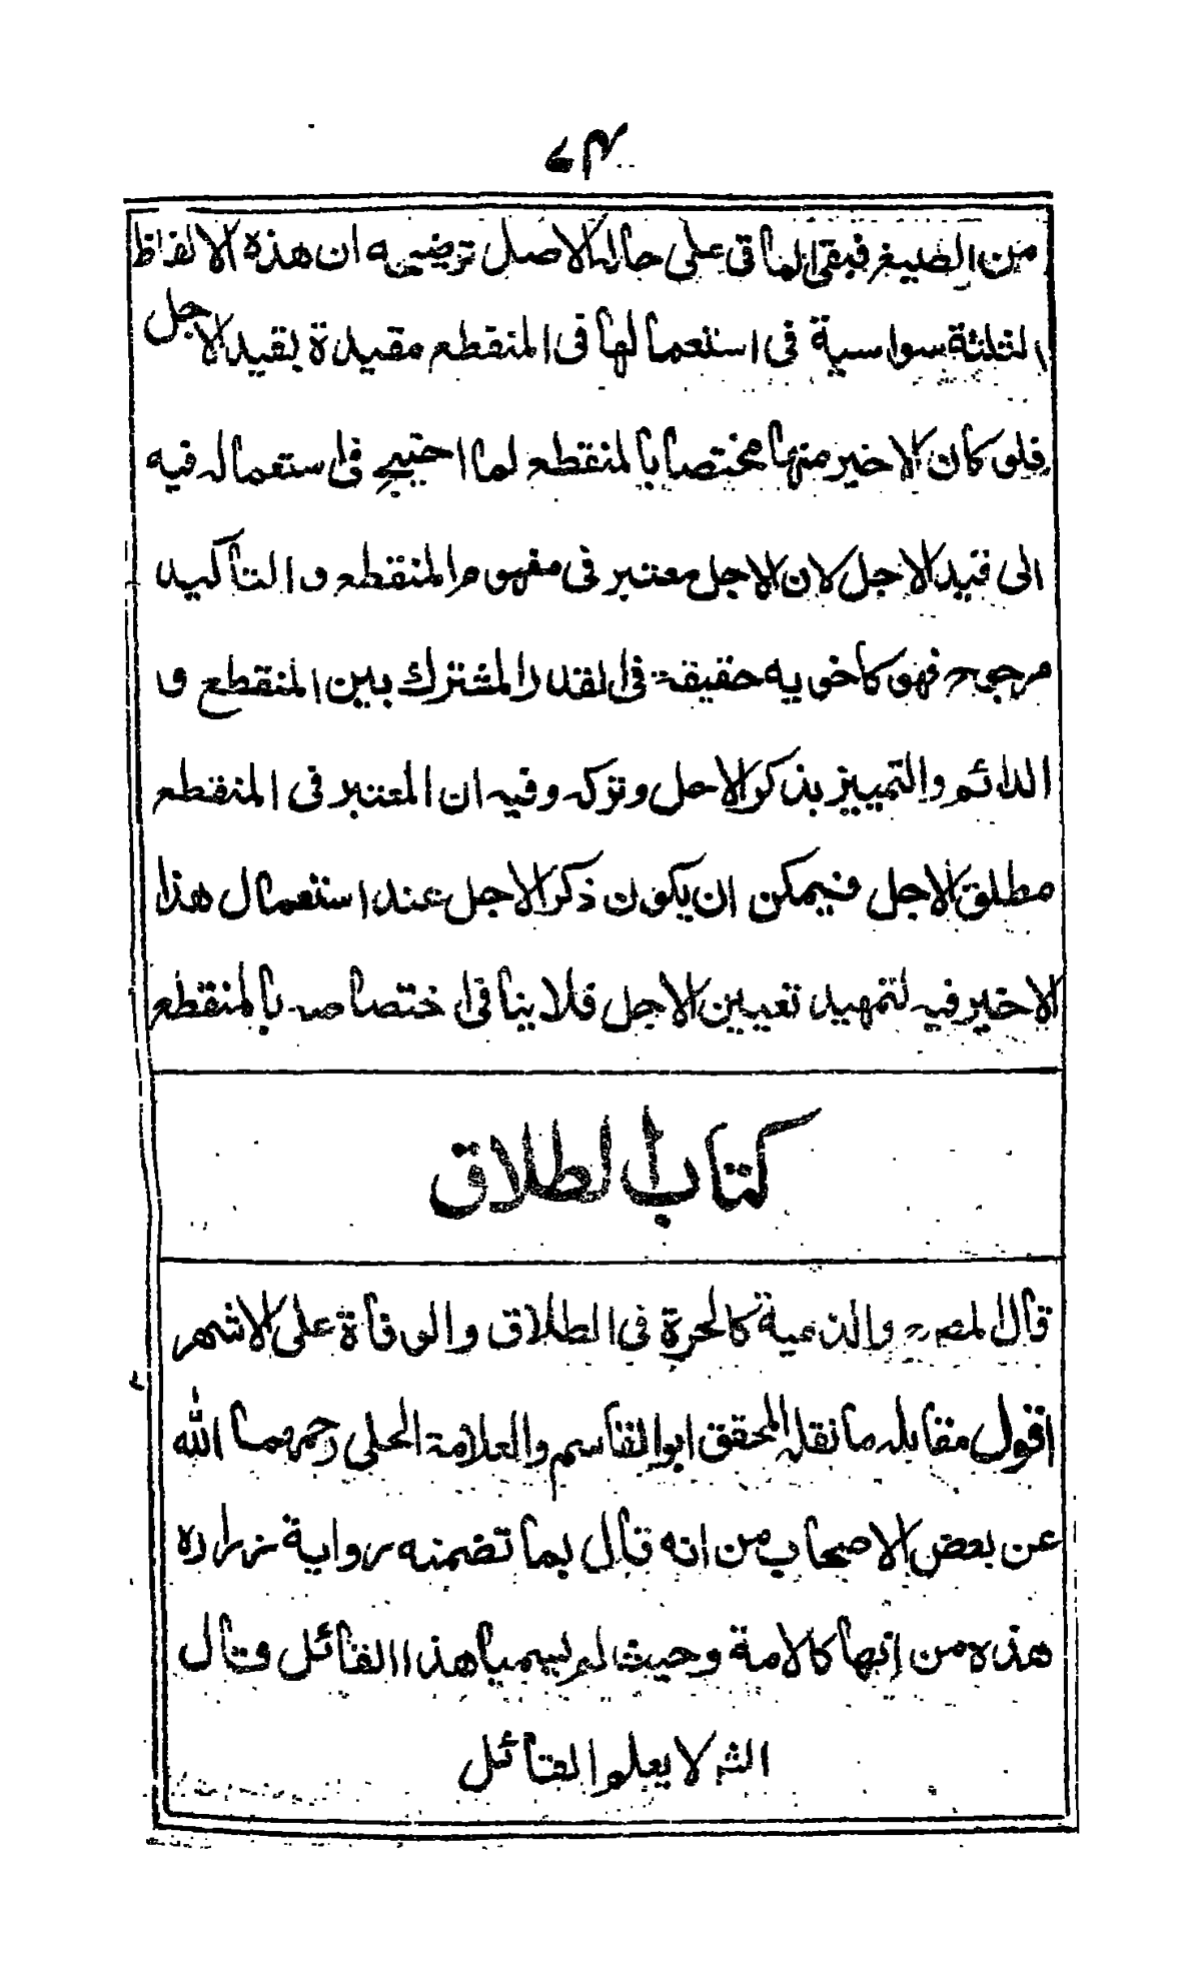 من الصيغ فبقى الباقى على حاله الاصل توضيحه ان هذه الالفاظ
الثلثة سواسية فى استعمالها فى المنقطع مقيدة بقيد الاجل
فلو كان الاخير منها مختصا بالمنقطع لما احتيج فى استعماله فيه
الى قيد الاجل لان الاجل معتبر فى مفهوم المنقطع و التأكيد
مرجوح فهو كاخويه حقيقة فى القدر المشترك بين المنقطع و
الدائم والتمييز بذكر الاجل وتركه وفيه ان المعتبر فى المنقطع
مطلق الاجل فيمكن ان يكون ذكر الاجل عند استعمال هذا
الاخير فيه لتمهيد تعيين الاجل فلا ينافى اختصاصه بالمنقطع
كتاب الطلاق
قال المصرح والذمية كالحرة فى الطلاق والوفاة على الاشهر
اقول مقابله ما نقله المحقق ابوالقاسم والعلامة الحلى رحمهما الله
عن بعض الاصحاب من انه قال بما تضمنه رواية زراره
هذه من انها كالامة وحيث لم يسميا هذا القائل وقال
الشه لا يعلم القائل